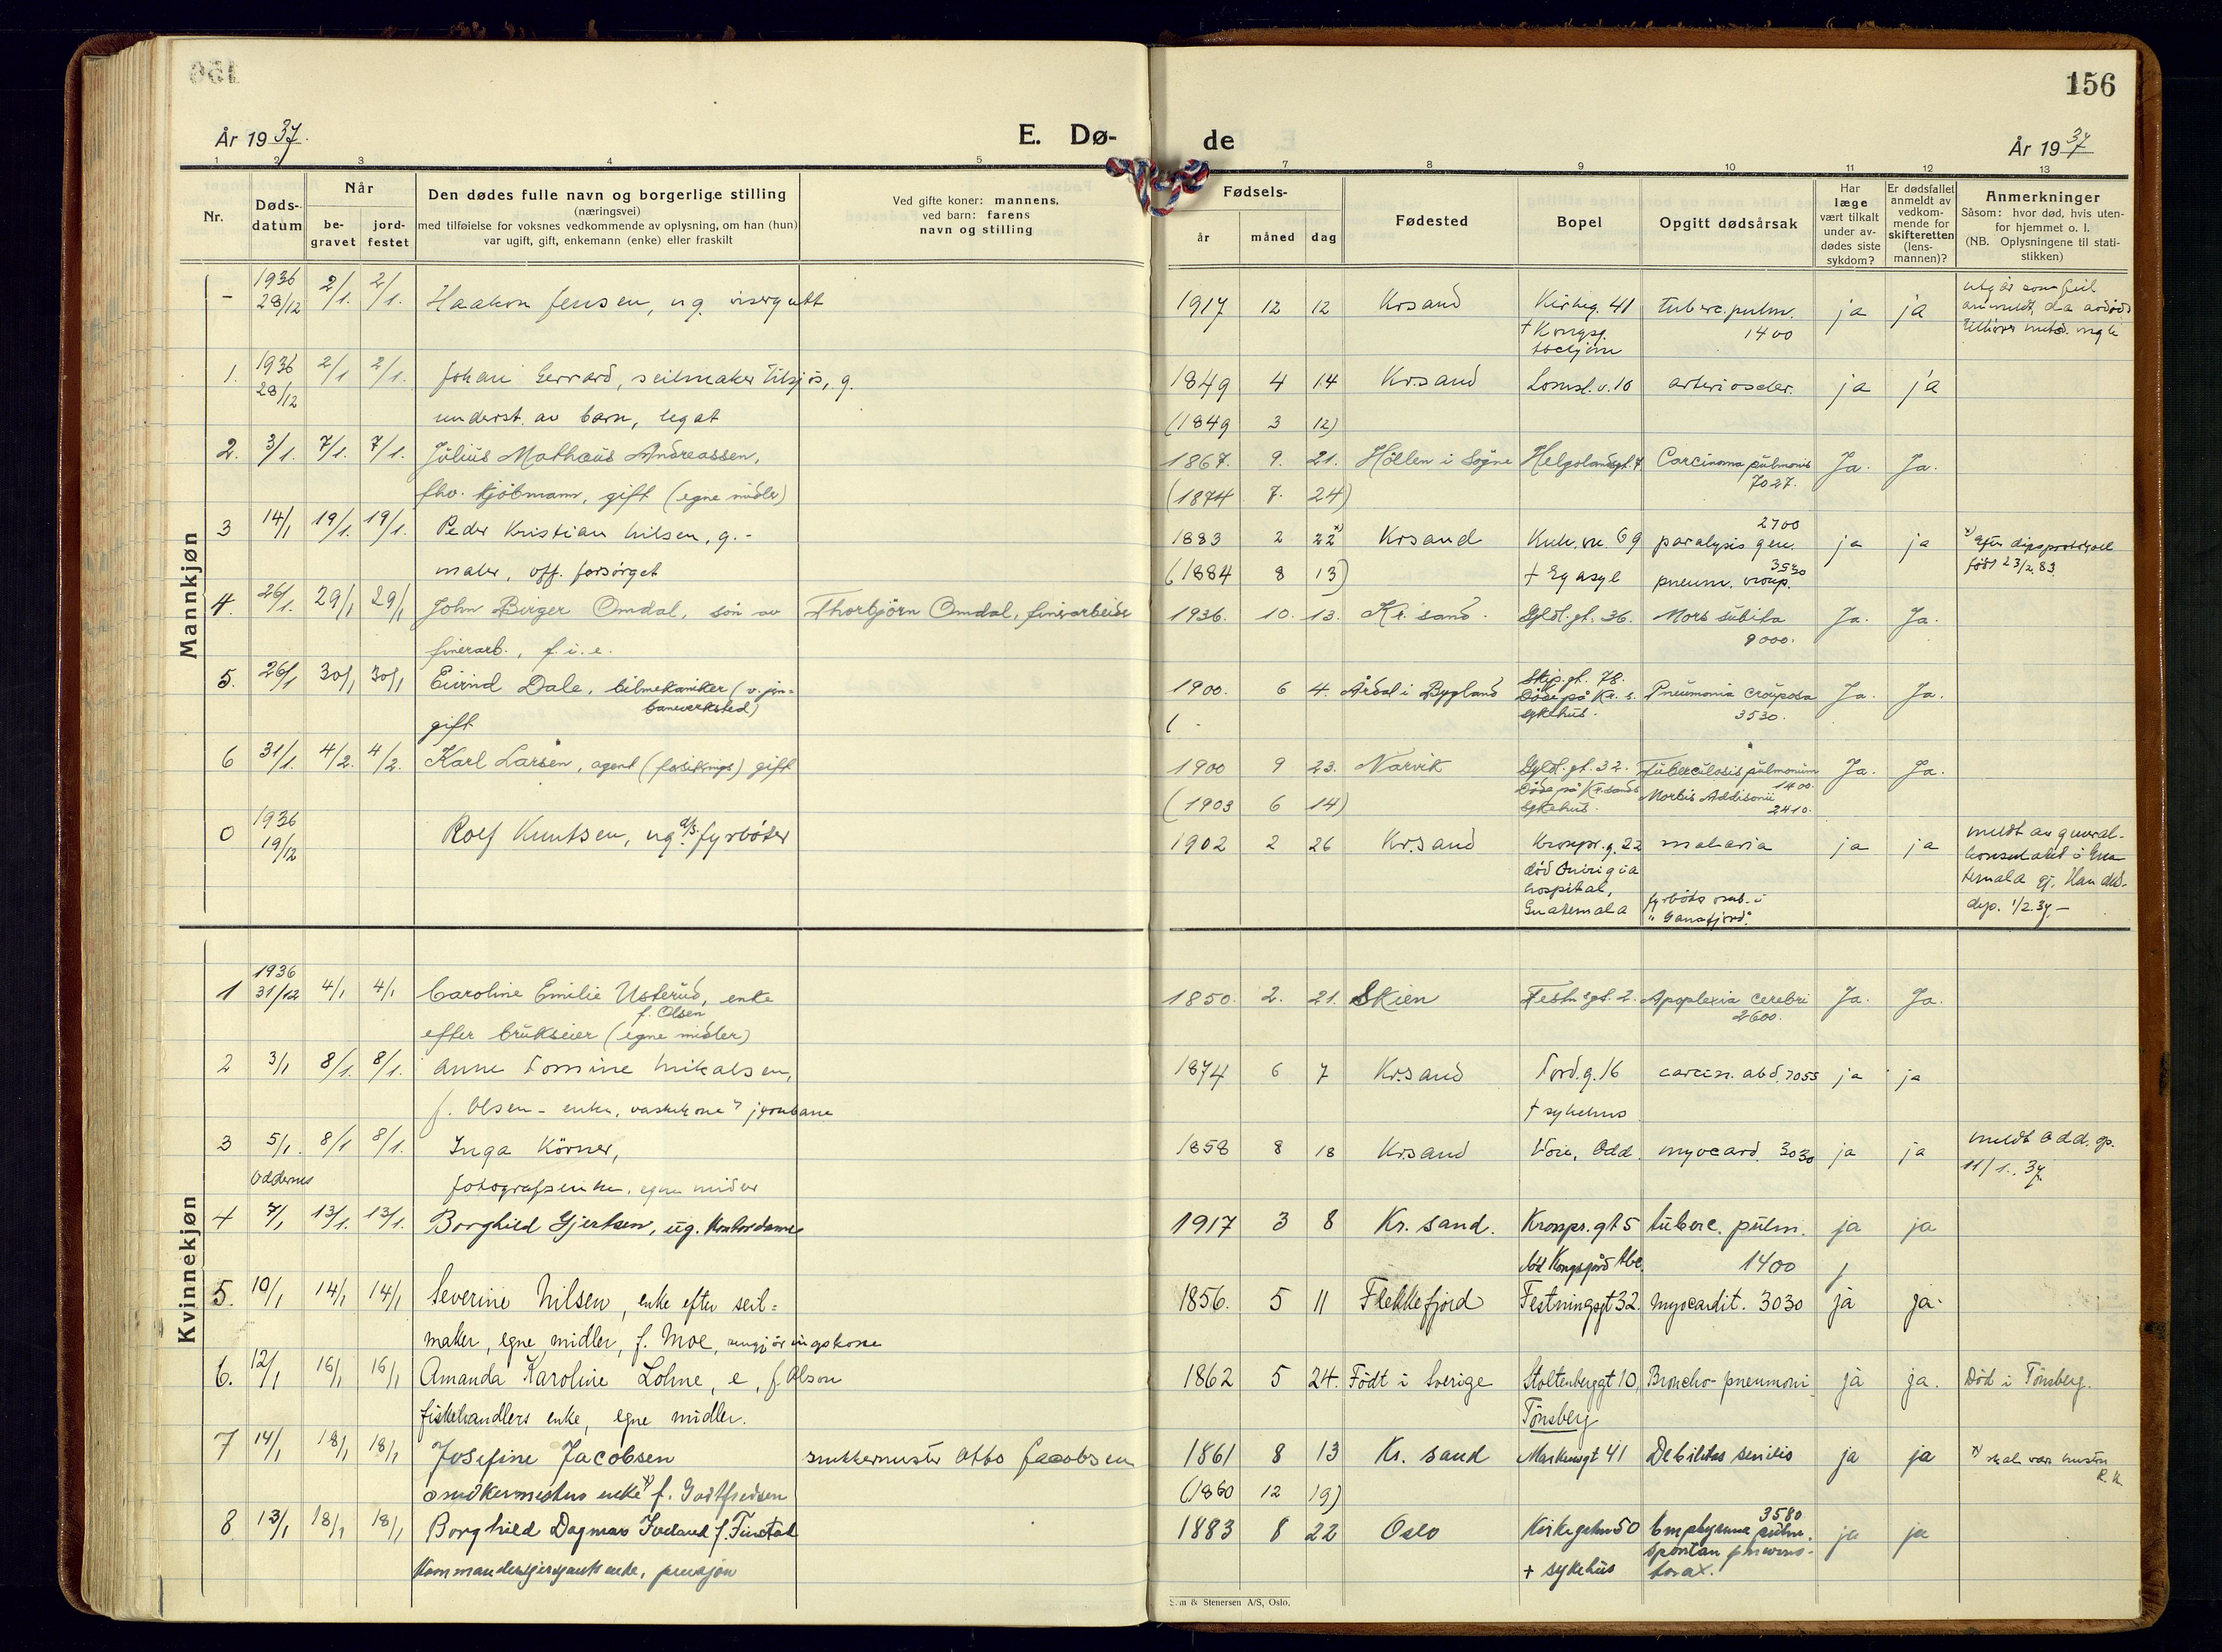 156
År 1937.
E. Dø-
de
År 1937
1 2 3 4 5 7 8 9 10 11 12 13
Nr.
Døds-
datum
Når
be-
gravet
jord-
festet
Den dødes fulle navn og borgerlige stilling
(næringsvei)
med tilføielse for voksnes vedkommende av oplysning, om han (hun)
var ugift, gift, enkemann (enke) eller fraskilt
Ved gifte koner: mannens,
ved barn: farens
navn og stilling
Fødsels-
år måned dag
Fødested
Bopel
Opgitt dødsårsak
Har
læge
vært tilkalt
under av-
dødes siste
sykdom?
Er dødsfallet
anmeldt av
vedkom-
mende for
skifteretten
(lens-
mannen)?
Anmerkninger
Såsom: hvor død, hvis uten-
for hjemmet o. l.
(NB. Oplysningene til stati-
stikken)
Mannkjøn
- 1936 28/12 2/1. 2/1. Haakon Jensen, ug. visergutt 1917 12 12 Krsand Kirkeg. 41 tuberc. pulm. ja ja
1400
1. 1936 28/12 2/1 2/1. Johan Gerrard, seilmaker tilsjøs, g. 1849 4 14 Kr.sand v. 10 ja ja
underst. av barn, legat (1849 3 12)
2. 3/1. 7/1. 7/1. Julius Mathæus Andreassen, 1867. 9. 21. Höllen i Søgne Helgolandsgt. 7 Carcinoma pulmonis Ja. Ja.
fhv. kjöbmann, gift (egne midler) (1874 7. 24) 7027.
3 14/1 19/1. 19/1. Peder Kristian Nilsen, g. - 1883 2 22 x) Krsand 69 paralysis gen. 2700 ja ja
maler, off. forsørget (1884 8 13) + Eg asyl pneum. croup. 3530
født 23/2.83.
4. 26/1. 29/1 29/1 John Birger Omdal, søn av Thorbjörn Omdal, finerarbeider 1936. 10. 13. Kr.sand. Gyld. gt. 36. Mors subita Ja. Ja.
finerarb., f. i. e. 9000.
5. 26/1 30/1 30/1 Eivind Dale, bilmekaniker (v. jern-
baneverksted) 1900. 6 4. Årdal i Bygland Skip. gt. 78. Pneumonia crouposa Ja. Ja.
gift Døde på Kr. s. sykehus. 3530.
6 31/1. 4/2. 4/2. Karl Larsen, agent (forsikrings) gift 1900 9 23. Narvik Gyld. gt. 32. Tuberculosis pulmonum Ja. Ja.
1400.
(1903 6 14) Døde på Kr.sands sykehus. Morbis Addisonii
2410.
0 1936 19/12 Rolf Knutsen, ug. fyrbøter 1902 2 26 Kr.sand Kronpr. g. 22 malaria ja ja meldt av general-
hospital,
Guatemala
dep. 1/2.37. -
Kvinnekjøn
1 1936 31/12 4/1 4/1 Caroline Emilie Usterud, enke 1850. 2. 21. Skien Festn.gt. 2. Apoplexia cerebri Ja. Ja.
f. Olsen 2600.
efter brukseier (egne midler)
2 3/1 8/1. 8/1. Anne Tomine Mikalsen, 1874 6 7 Kr.sand Tord. g. 16 carcin. abd. 7055 ja ja
f. Olsen - enke, vaskekone v/ jernbane + sykehus
3 5/1. 8/1 8/1. Inga Körner, 1858 8 18 Kr.sand Voie, Odd. myocard. 3030 ja ja meldt Odd. sp.
Oddernes fotografs enke, egne midler 11/1.37.
4 7/1 13/1. 13/1. Borghild Gjertsen, ug. Kontordame 1917 3 8 Kr. sand. Kronpr. gt 5 tuberc. pulm. ja ja
1400
5. 10/1 14/1 14/1 Severine Nilsen, enke efter seil= 1856. 5 11 Flekkefjord Festningsgt 32. myocardit. 3030 ja ja.
maker, egne midler, f. Moe, rengjøringskone
6. 12/1 16/1 16/1 Amanda Karoline Lohne, e, f. Olson 1862 5 24. Født i Sverige Stoltenberggt 10, Broncho-pneumoni ja ja. Død i Tønsberg.
fiskehandlers enke, egne midler. Tönsberg
7 14/1 18/1 18/1 Josefine Jacobsen snekkermester Otto Jacobsen 1861 8 13 Kr. sand Markensgt 41 Debilitas senilis ja ja
snekkermesters enke x) f. Godtfredsen (1860 12 19)
8 13/1 18/1 18/1 Borghild Dagmar Iveland f. Finstad 1883 8 22 Oslo Kirkegaten 50 Emphysema pulm. 3580 ja ja
enke, pensjon + sykehus spontan pneumo-
torax.
S_m & Stenersen A/S, Oslo.